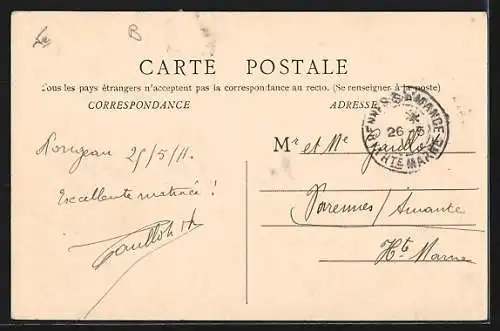 B
CARTE POSTALE
Tous les pays étrangers n'acceptent pas la correspondance au recto. (Se renseigner à la poste)
CORRESPONDANCE
ADRESSE
26-5
HTE MARNE
25/5/11.
Excellente matinée !
Mr et Me
Varennes / Amance
Hte Marne